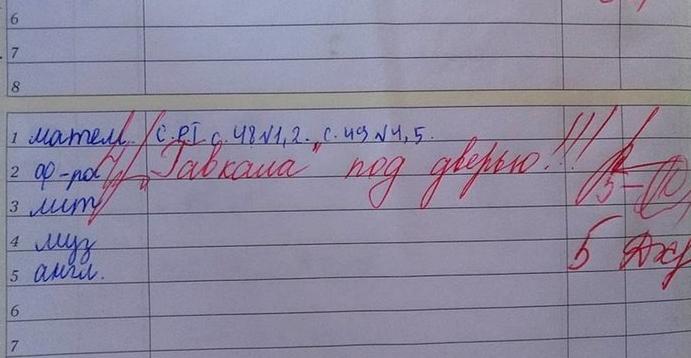 6
7
8
1 матем. с. РТ с. 48 №1, 2. с. 49 №4, 5.
2 ф-ра "Гавкала" под дверью!!!
3 лит 5-
4 муз 5
5 англ.
6
7